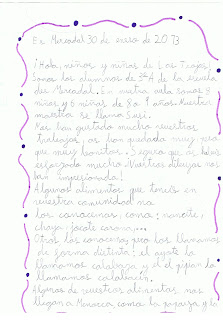 Es Mercadal 30 de enero de 2013
¡Hola, niños y niñas de Los Trojes!
Somos los alumnos de 3ºA de la escuela
des Mercadal. En nuestra aula somos 9
niñas y 6 niños de 8 o 9 años. Nuestra
maestra se llama Susi.
Nos han gustado mucho vuestros
trabajos, os han quedado muy, pero
que muy bonitos y seguro que os habéis
esforzado mucho. Vuestros dibujos nos
han impresionado!
Algunos alimentos que tenéis en
vuestra comunidad no
los conocemos, como: nanche,
chaya, jocote corona,...
Otros los conocemos pero los llamamos
de forma distinta: el ayote lo
llamamos calabaza y el pipián lo
llamamos calabacín.
Algunos de vuestros alimentos nos
llegan a Menorca, como la papaya y la